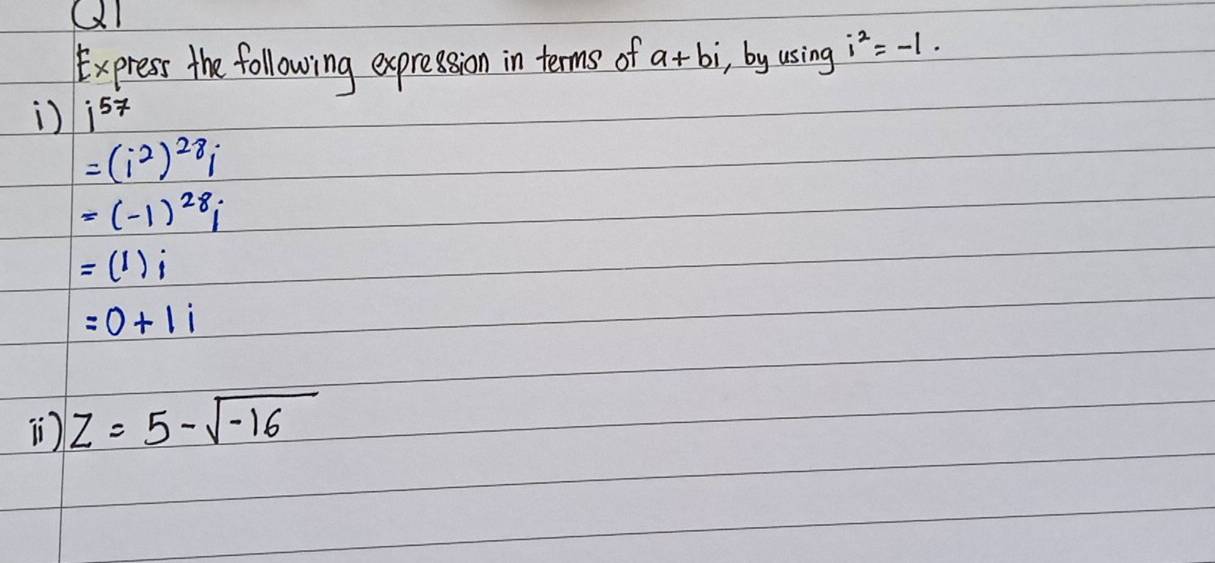 Q1
Express the following expression in terms of a+bi, by using i² = -1.
i) i⁵⁷
= (i²)²⁸i
= (-1)²⁸i
= (1) i
= 0 + 1 i
ii) Z = 5 - √-16